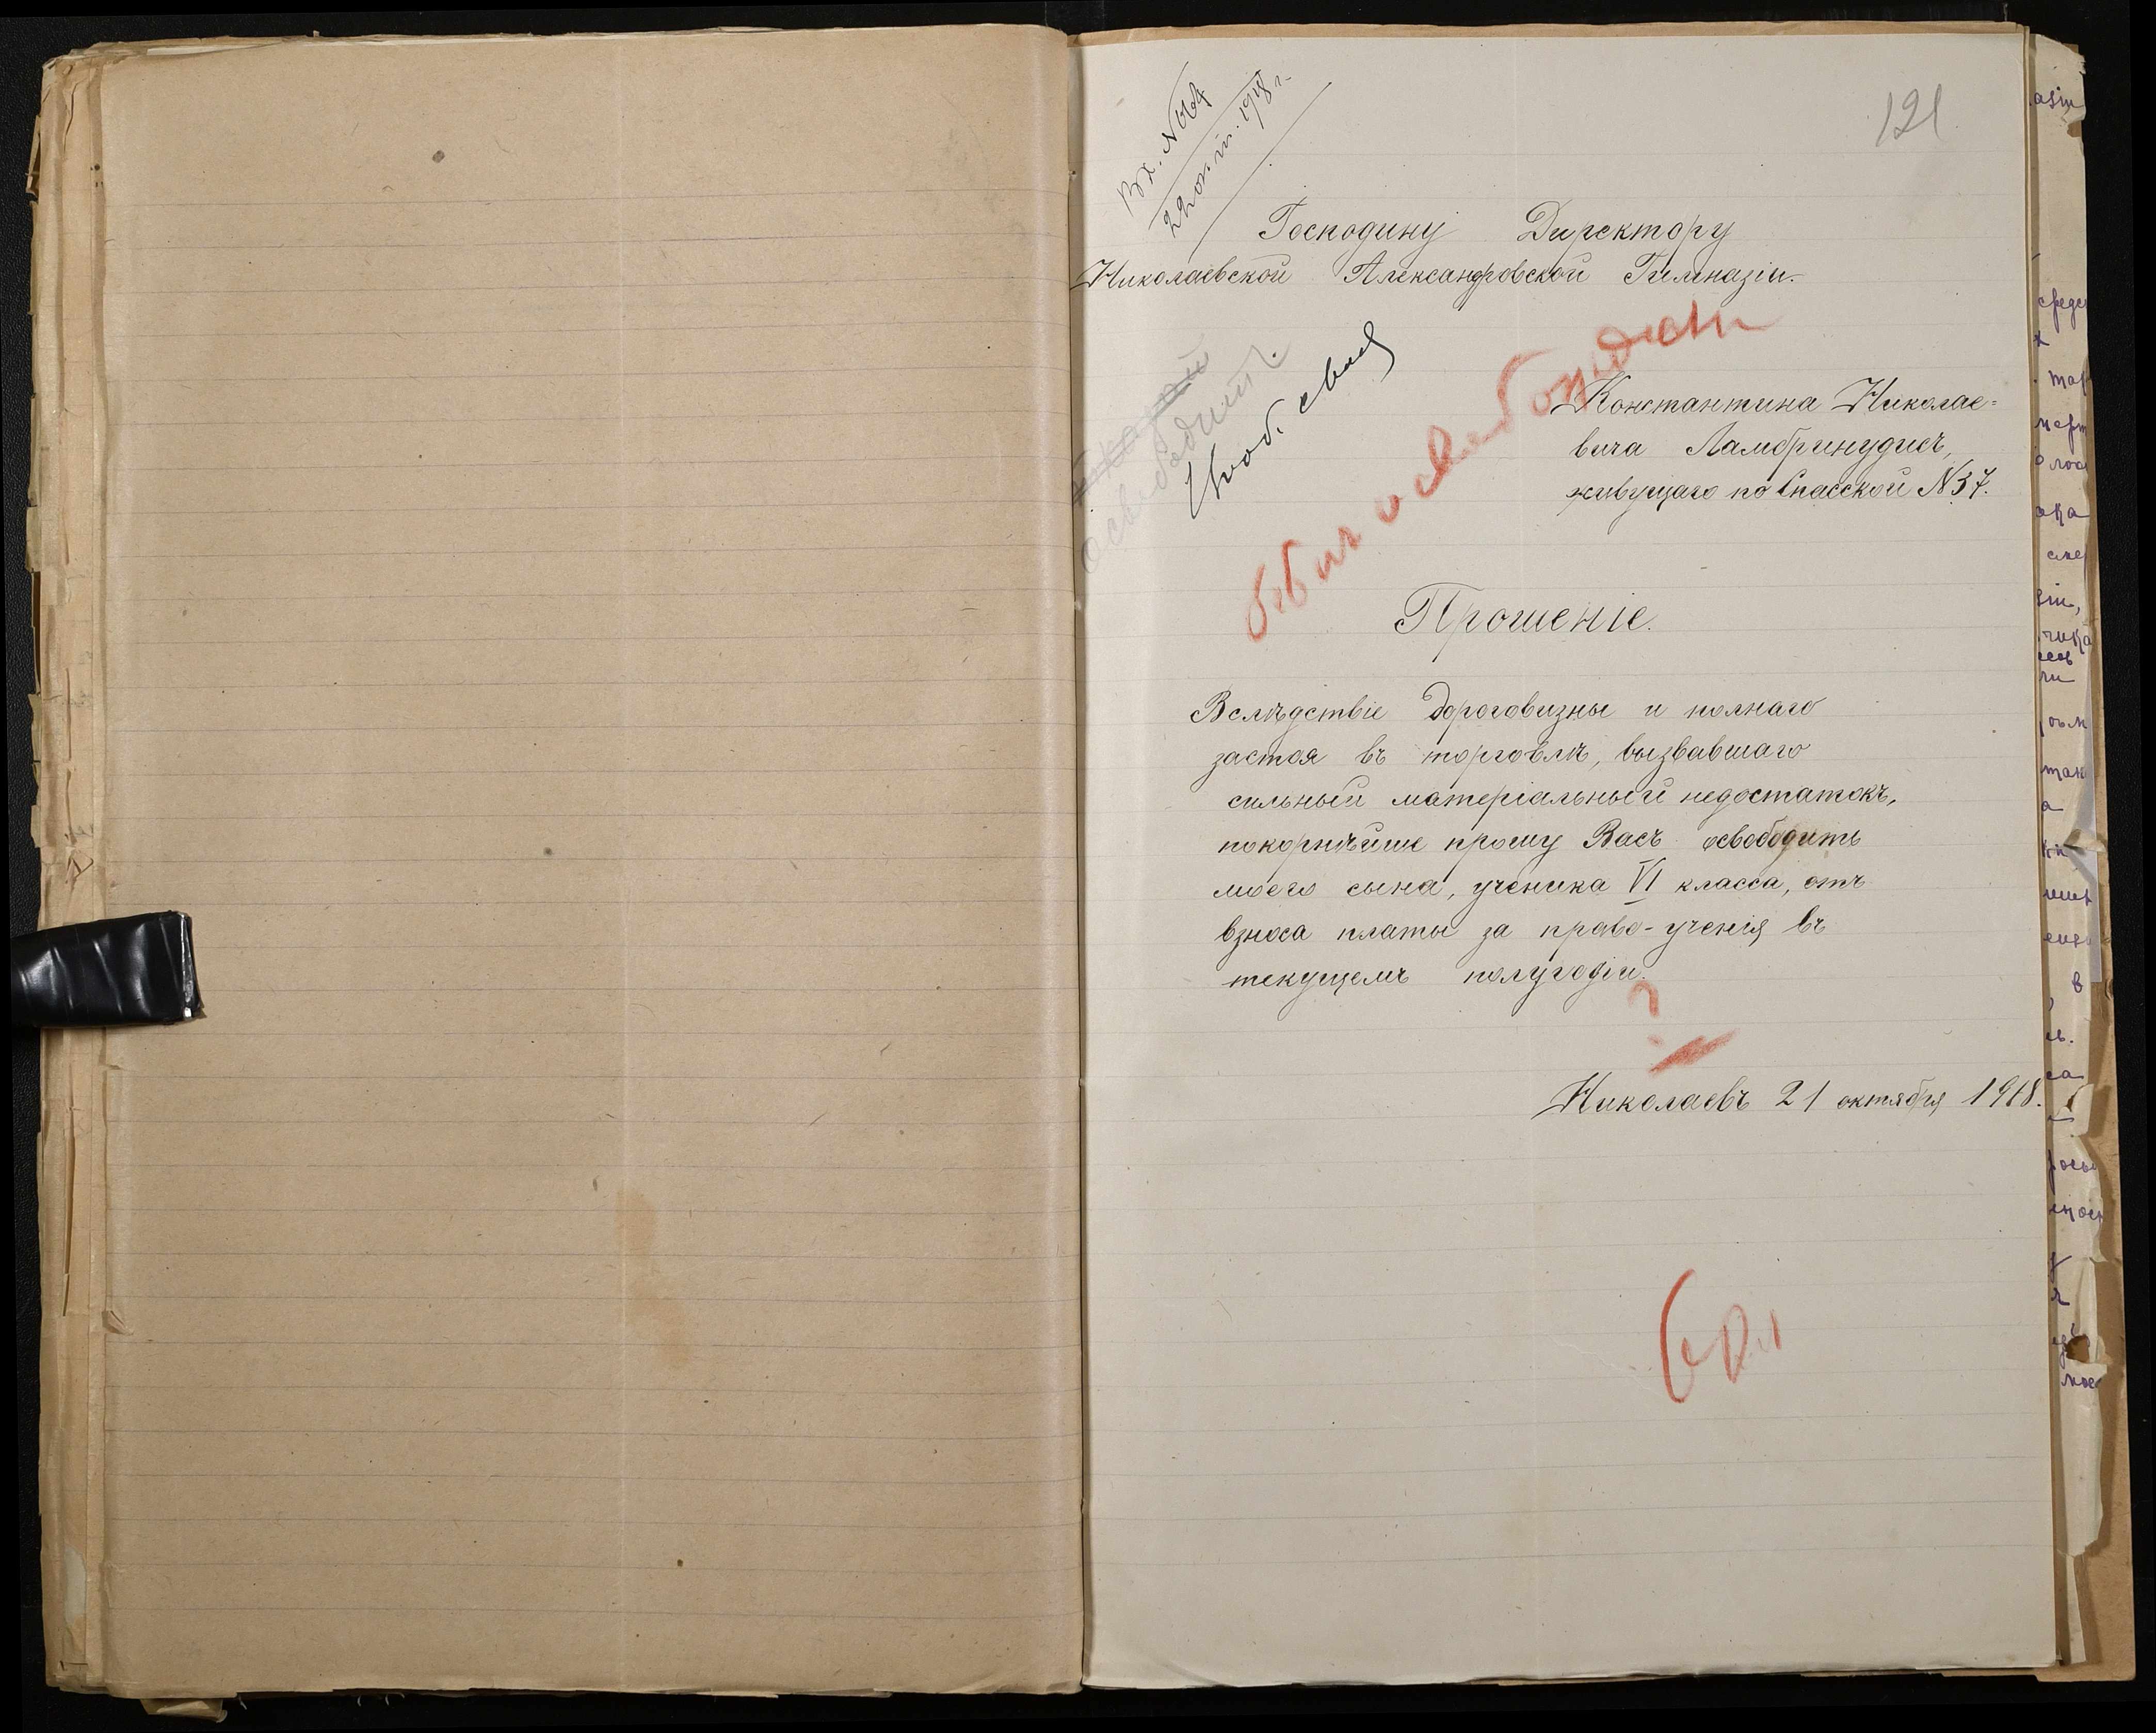 121
Вх. №
22 окт. 1918 г.
Господину Директору
Николаевской Александровской Гимназіи.
освободить
былъ освобожден
Константина Николае-
вича Ламбринудисъ,
живущаго по Спасской №37.
Прошеніе.
Вслѣдствіе дороговизны и полнаго
застоя въ торговлѣ, вызвавшаго
сильный матеріальный недостатокъ,
покорнѣйше прошу Васъ освободить
моего сына, ученика VI класса, отъ
взноса платы за право-ученія въ
текущемъ полугодіи.
?
Николаевъ 21 октября 1918.